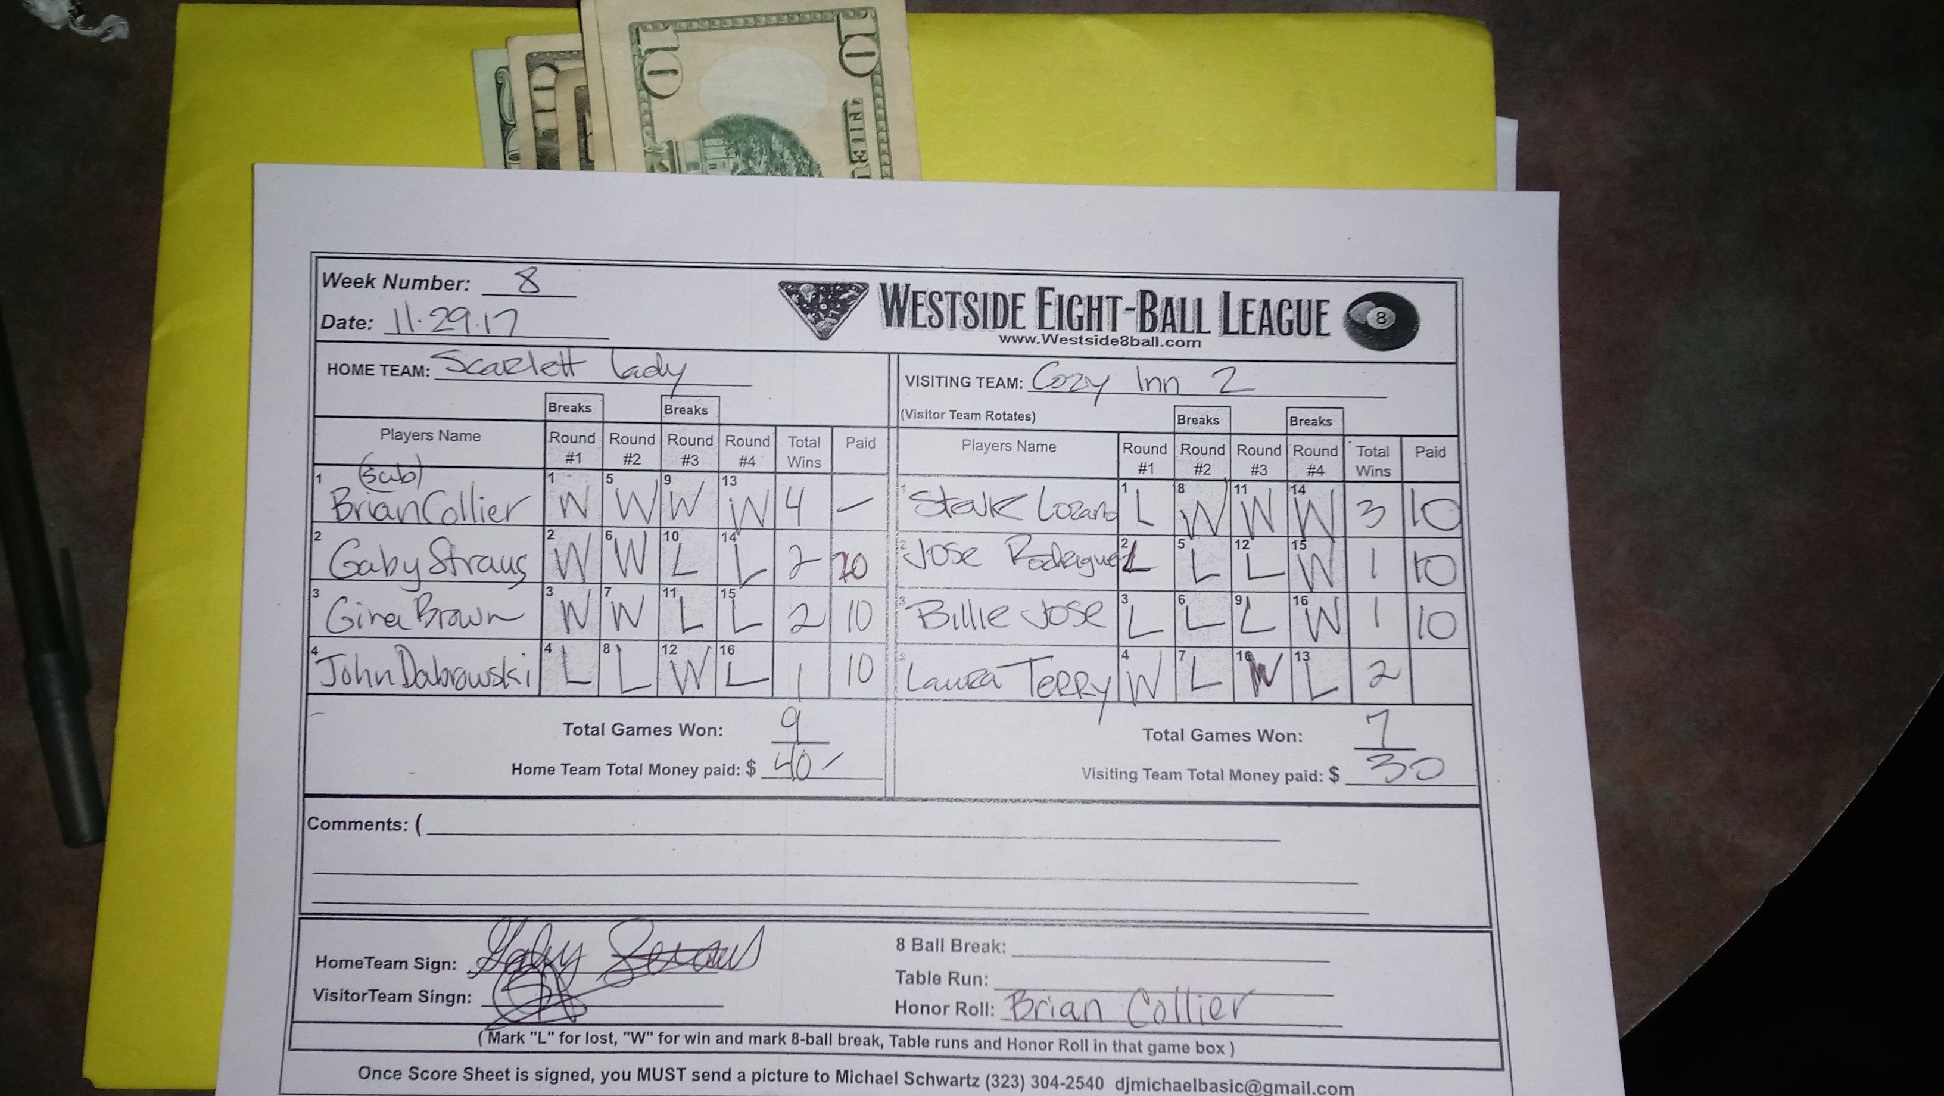 10 10
10
Week Number: 8
Date: 11.29.17
WESTSIDE EIGHT-BALL LEAGUE 8
www.Westside8ball.com
HOME TEAM: Scarlett Lady
VISITING TEAM: Cozy Inn 2
(Visitor Team Rotates)
Breaks Breaks Breaks Breaks
Players Name Round #1 Round #2 Round #3 Round #4 Total Wins Paid
Players Name Round #1 Round #2 Round #3 Round #4 Total Wins Paid
(sub)
1 Brian Collier 1 W 5 W 9 W 13 W 4 —
1 Lozano 1 L 8 W 11 W 14 W 3 10
2 Gaby Straus 2 W 6 W 10 L 14 L 2 20
2 Jose Rodriguez 2 L 5 L 12 L 15 W 1 10
3 Gina Brown 3 W 7 W 11 L 15 L 2 10
3 Billie Jose 3 L 6 L 9 L 16 W 1 10
4 John Dabrowski 4 L 8 L 12 W 16 L 1 10
Laura Terry 4 W 7 L 10 W 13 L 2
Total Games Won: 9
Total Games Won: 7
Home Team Total Money paid: $ 40
Visiting Team Total Money paid: $ 30
Comments: (
HomeTeam Sign: Gaby Straus
VisitorTeam Singn:
8 Ball Break:
Table Run:
Honor Roll: Brian Collier
( Mark "L" for lost, "W" for win and mark 8-ball break, Table runs and Honor Roll in that game box )
Once Score Sheet is signed, you MUST send a picture to Michael Schwartz (323) 304-2540 djmichaelbasic@gmail.com